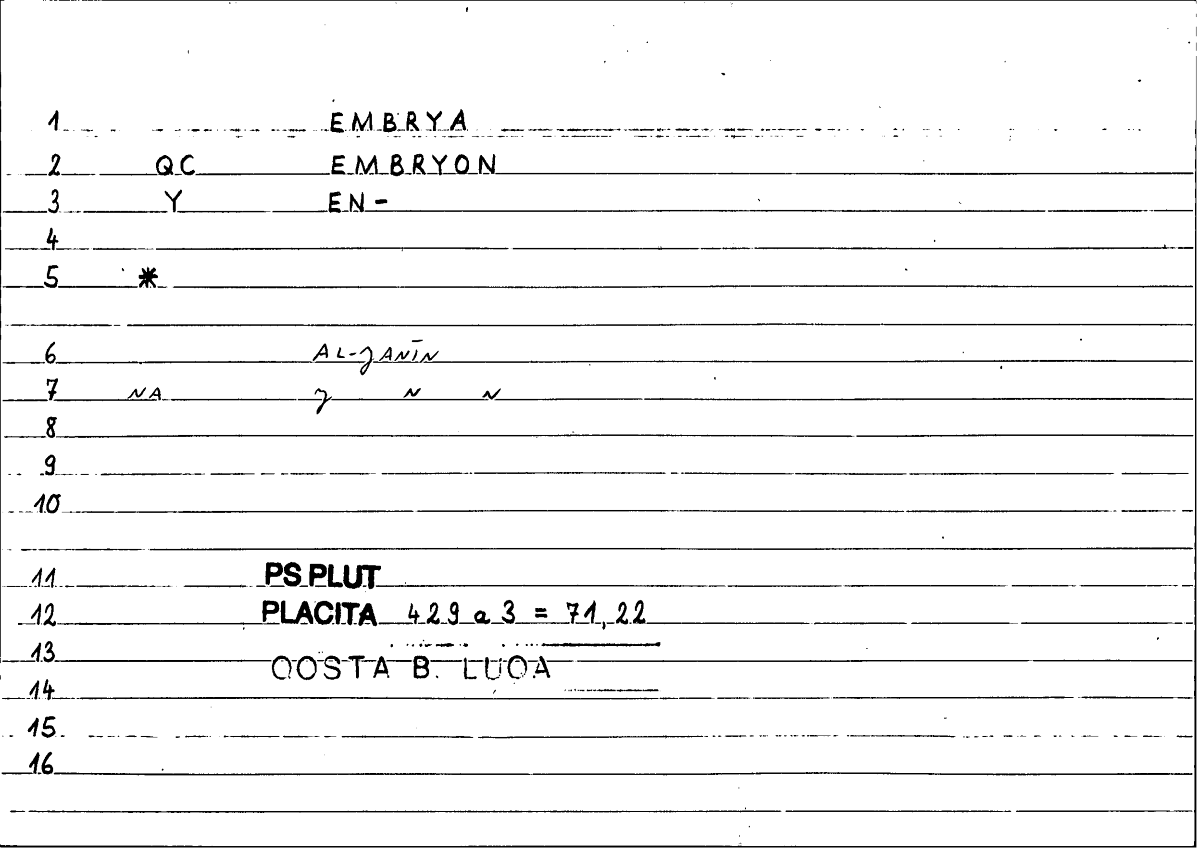 1 EMBRYA
2 QC EMBRYON
3 Y EN-
4
5 *
6 AL-ǦANĪN
7 NA Ǧ N N
8
9
10
11 PS PLUT
12 PLACITA 429 a 3 = 71,22
13
QOSTA B. LUQA
14
15
16